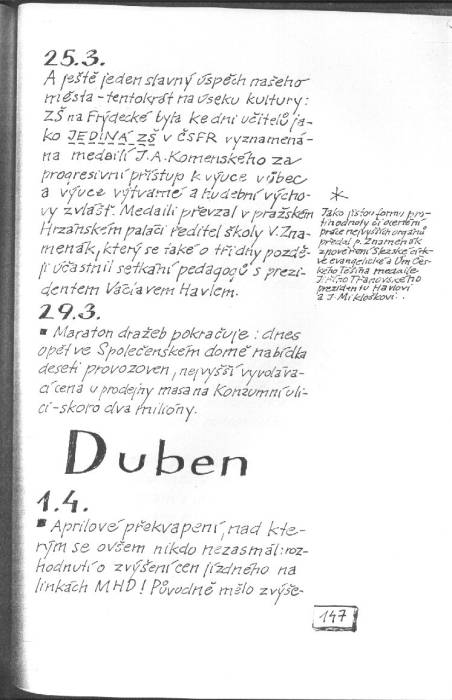 25.3.
A ještě jeden slavný úspěch našeho
města - tentokrát na úseku kultury:
ZŠ na Frýdecké byla ke dni učitelů ja-
ko JEDINÁ ZŠ v ČSFR vyznamená-
na medailí J.A. Komenského za
progresivní přístup k výuce vůbec
a výuce výtvarné a hudební výcho-
vy zvlášť. Medaili převzal v pražském
Hrzánském paláci ředitel školy V. Zna-
menák, který se také o tři dny pozdě-
ji účastnil setkání pedagogů s prezi-
dentem Václavem Havlem.
*
Jako jistou formu pro-
tihodnoty či ocenění
práce nejvyšších orgánů
předal p. Znamenák
z pověření Slezské církve
evangelické a UM Čes-
kého Těšína medaile
Jiřího Třanovského
prezidentu Havlovi
a J. Mikloškovi.
29.3.
▪ Maraton dražeb pokračuje: dnes
opět ve Společenském domě nabídka
deseti provozoven, nejvyšší vyvoláva-
cí cena u prodejny masa na Konzumní uli-
ci - skoro dva milióny.
Duben
1.4.
▪ Aprílové překvapení, nad kte-
rým se ovšem nikdo nezasmál: roz-
hodnutí o zvýšení cen jízdného na
linkách MHD! Původně mělo zvýše-
147